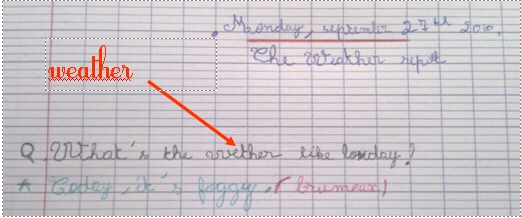 . Monday, september 27th 2010.
The Weather repot
weather
Q. What's the wether like tonday?
* Today, it's foggy. (brumeux)